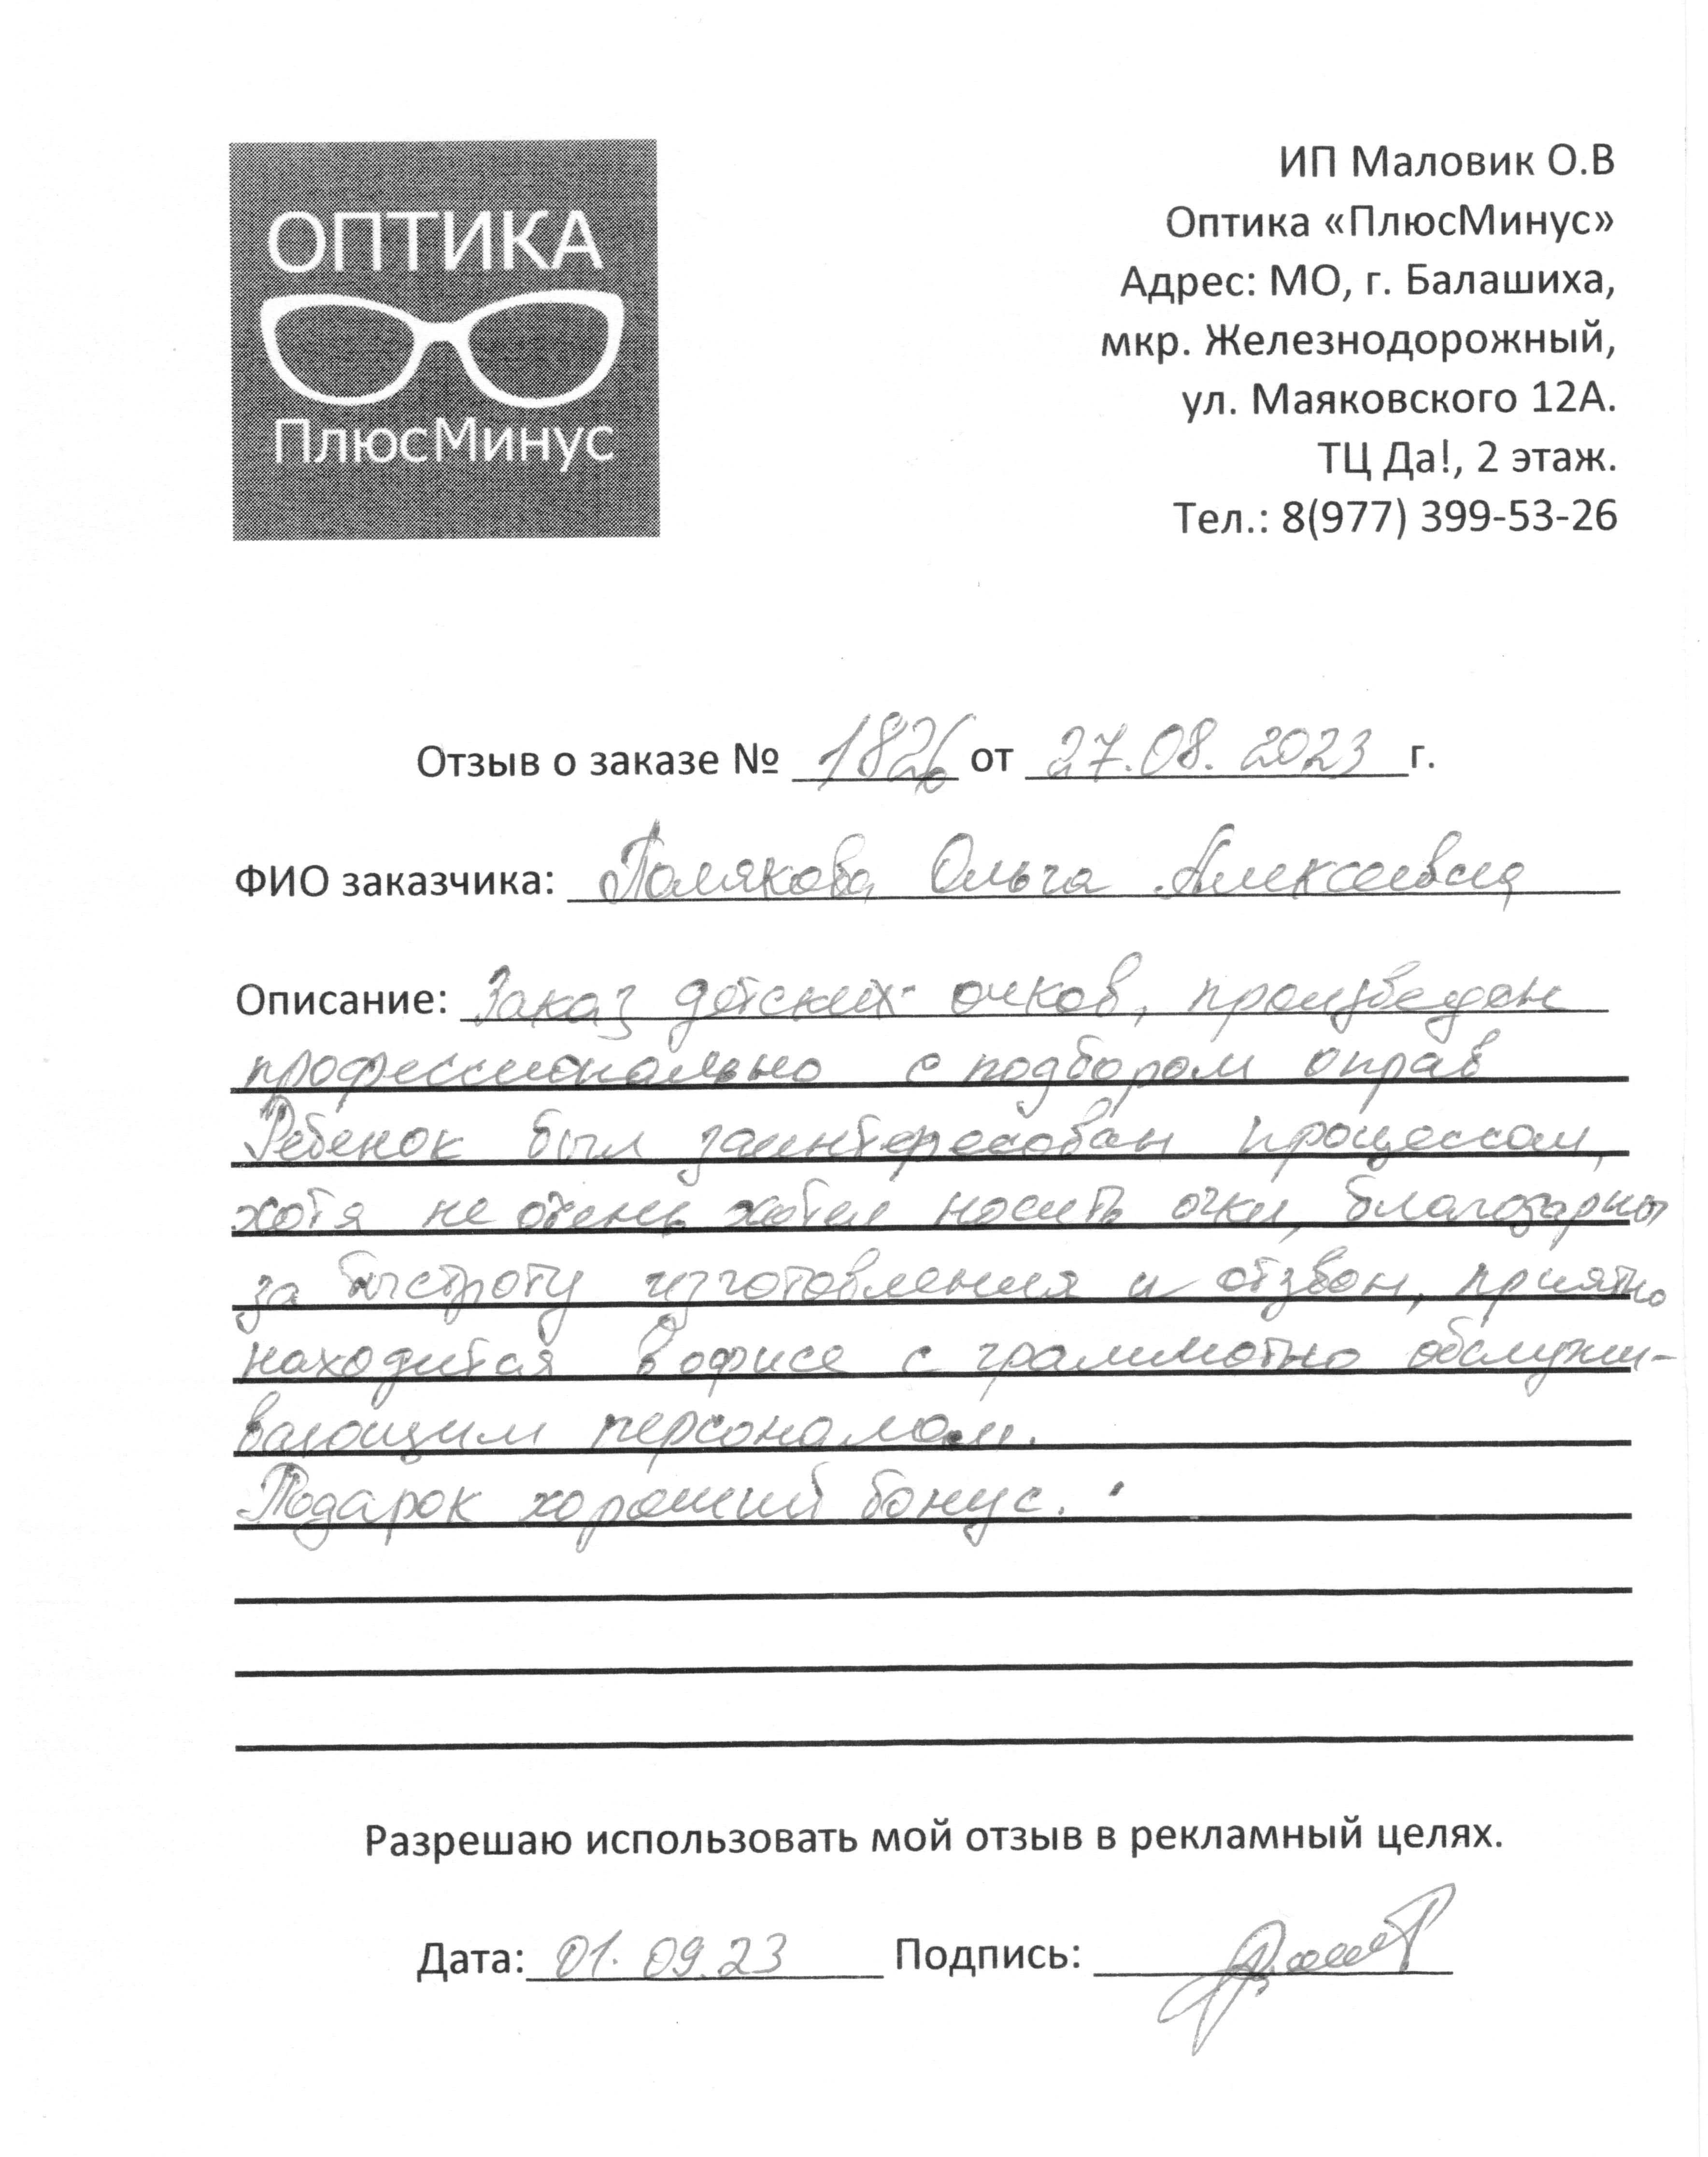 ОПТИКА
ПлюсМинус
ИП Маловик О.В
Оптика «ПлюсМинус»
Адрес: МО, г. Балашиха,
мкр. Железнодорожный,
ул. Маяковского 12А.
ТЦ Да!, 2 этаж.
Тел.: 8(977) 399-53-26
Отзыв о заказе № 1826 от 27.08.2023 г.
ФИО заказчика: Полякова Ольга Алексеевна
Описание: Заказ детских очков, произведен
профессионально с подбором оправ
Ребенок был заинтересован процессом,
хотя не очень хотел носить очки, благодарны
за быстроту изготовления и отзвон, приятно
находится в офисе с грамотно обслужи-
вающим персоналом.
Подарок хороший бонус.
Разрешаю использовать мой отзыв в рекламный целях.
Дата: 01.09.23 Подпись: